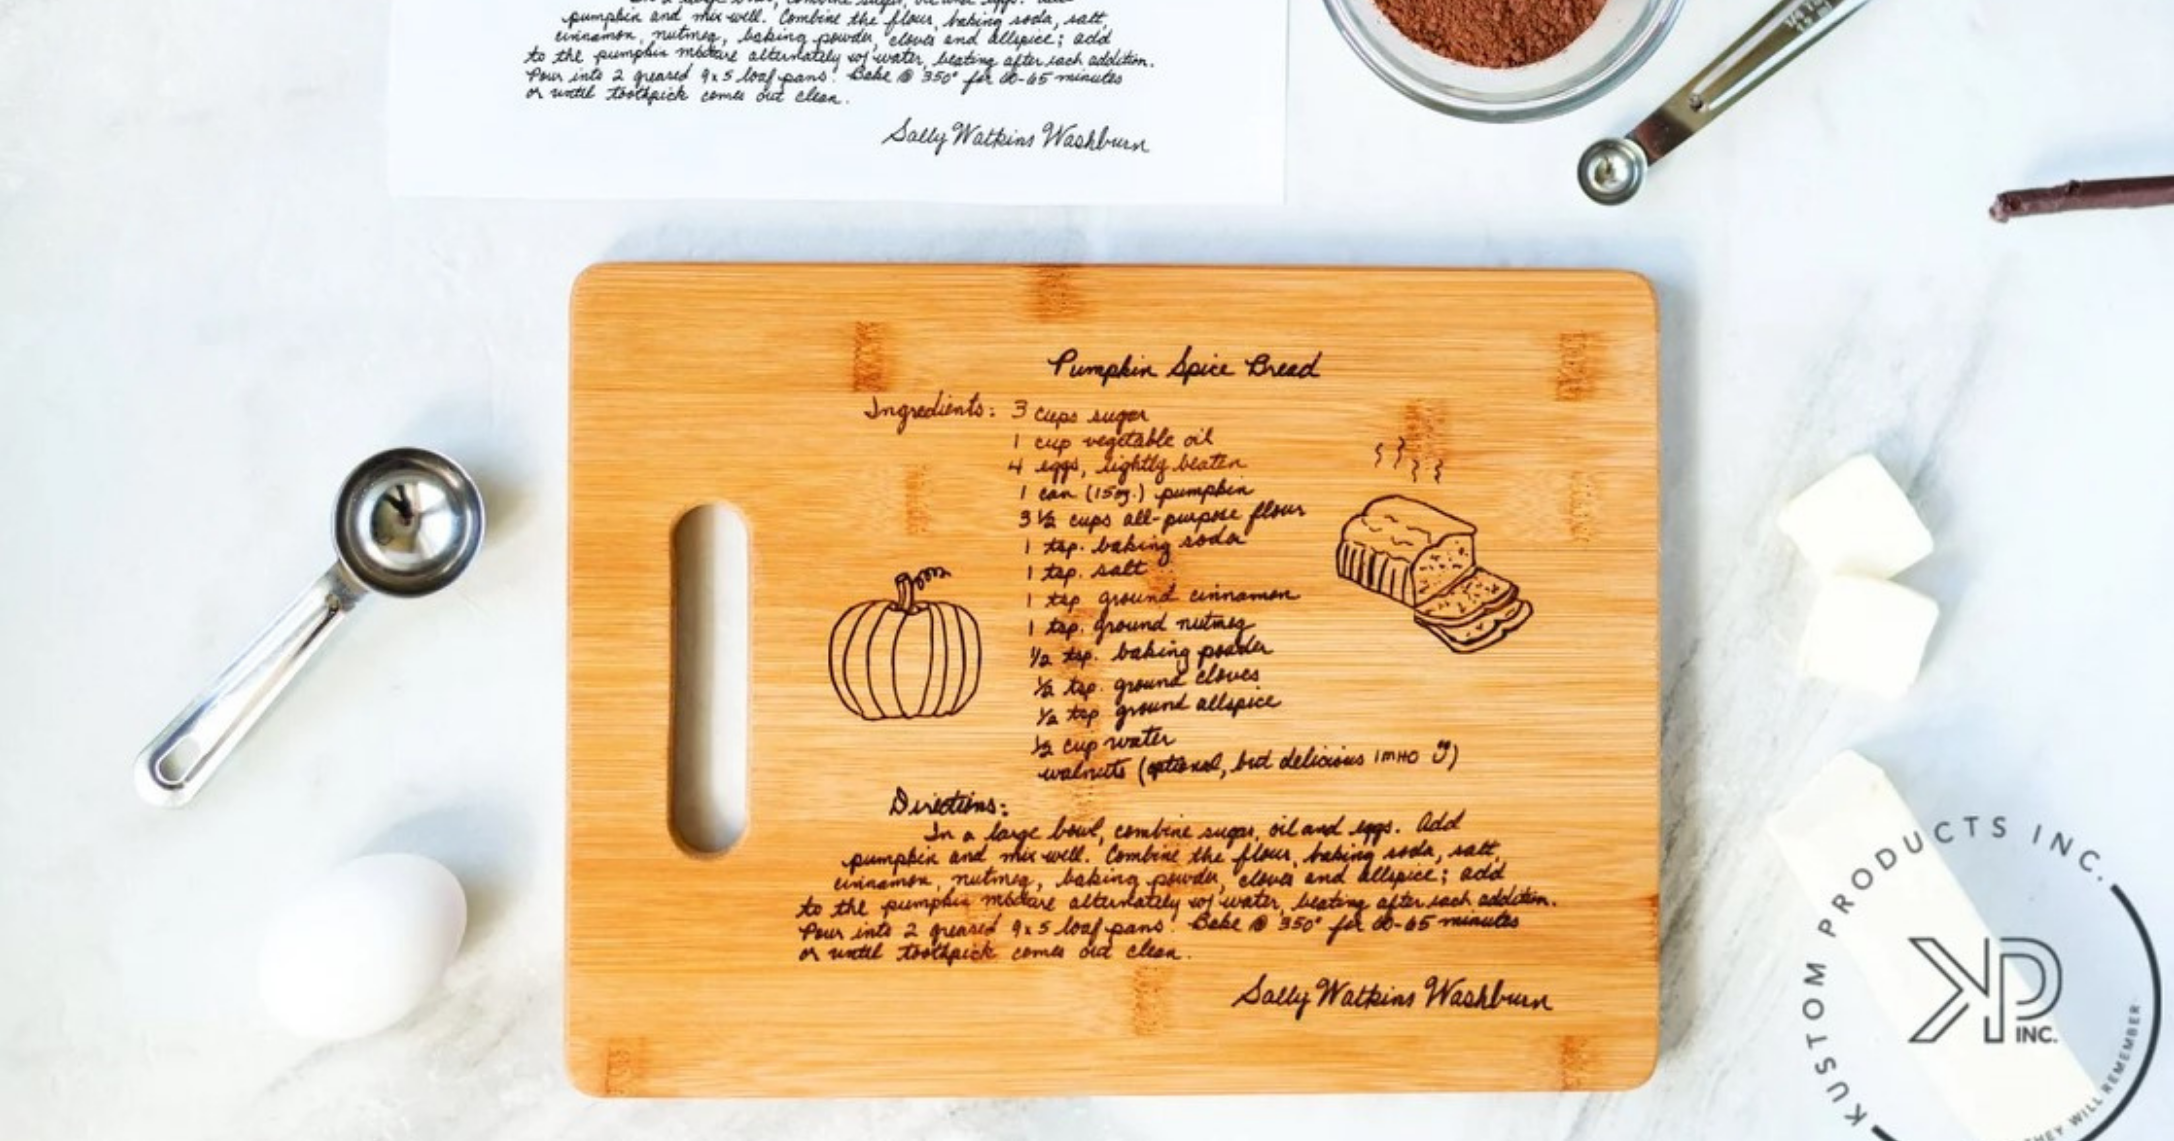 In a large bowl, combine sugar, oil and eggs. Add
pumpkin and mix well. Combine the flour, baking soda, salt,
cinnamon, nutmeg, baking powder, cloves and allspice; add
to the pumpkin mixture alternately w/ water, beating after each addition.
Pour into 2 greased 9x5 loaf pans. Bake @ 350° for 60-65 minutes
or until toothpick comes out clean.
Sally Watkins Washburn
Pumpkin Spice Bread
Ingredients: 3 cups sugar
1 cup vegetable oil
4 eggs, lightly beaten
1 can (15oz.) pumpkin
3 1/2 cups all-purpose flour
1 tsp. baking soda
1 tsp. salt
1 tsp ground cinnamon
1 tsp. ground nutmeg
1/2 tsp. baking powder
1/2 tsp. ground cloves
1/2 tsp ground allspice
1/2 cup water
walnuts (optional, but delicious IMHO)
Directions:
In a large bowl, combine sugar, oil and eggs. Add
pumpkin and mix well. Combine the flour, baking soda, salt,
cinnamon, nutmeg, baking powder, cloves and allspice; add
to the pumpkin mixture alternately w/ water, beating after each addition.
Pour into 2 greased 9x5 loaf pans. Bake @ 350° for 60-65 minutes
or until toothpick comes out clean.
Sally Watkins Washburn
KUSTOM PRODUCTS INC.
KP
INC.
THEY WILL REMEMBER